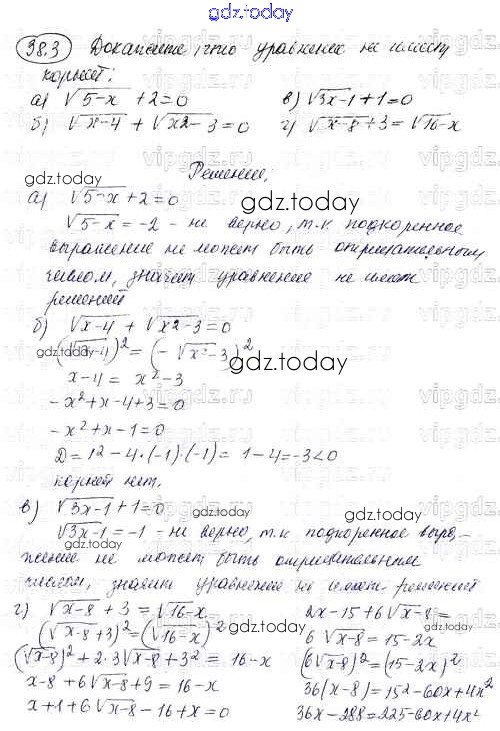 gdz.today
38.3 Докажите, что уравнение не имеет
корней:
а) √5-x + 2 = 0 в) √3x-1 + 1 = 0
б) √x-4 + √x2-3 = 0 г) √x-8 + 3 = √16-x
Решение:
gdz.today
а) √5-x + 2 = 0
√5-x = -2 - не верно, т.к. подкоренное
выражение не может быть отрицательным
числом, значит уравнение не имеет
решений
б) √x-4 + √x2-3 = 0
(√x-4)² = (-√x²-3)²
gdz.today
gdz.today
x-4 = x²-3
-x²+x-4+3=0
-x²+x-1=0
D = 1²-4·(-1)·(-1) = 1-4=-3<0
корней нет.
в) √3x-1+1=0
√3x-1=-1 - не верно, т.к. подкоренное выра-
gdz.today
жение не может быть отрицательным
числом, значит уравнение не имеет решений
г) √x-8 + 3 = √16-x
(√x-8+3)² = (√16-x)²
gdz.today
(√x-8)²+2·3√x-8+3² = 16-x
x-8+6√x-8+9=16-x
x+1+6√x-8-16+x=0
2x-15+6√x-8=
6√x-8=15-2x
(6√x-8)²=(15-2x)²
36(x-8)=15²-60x+4x²
36x-288=225-60x+4x²